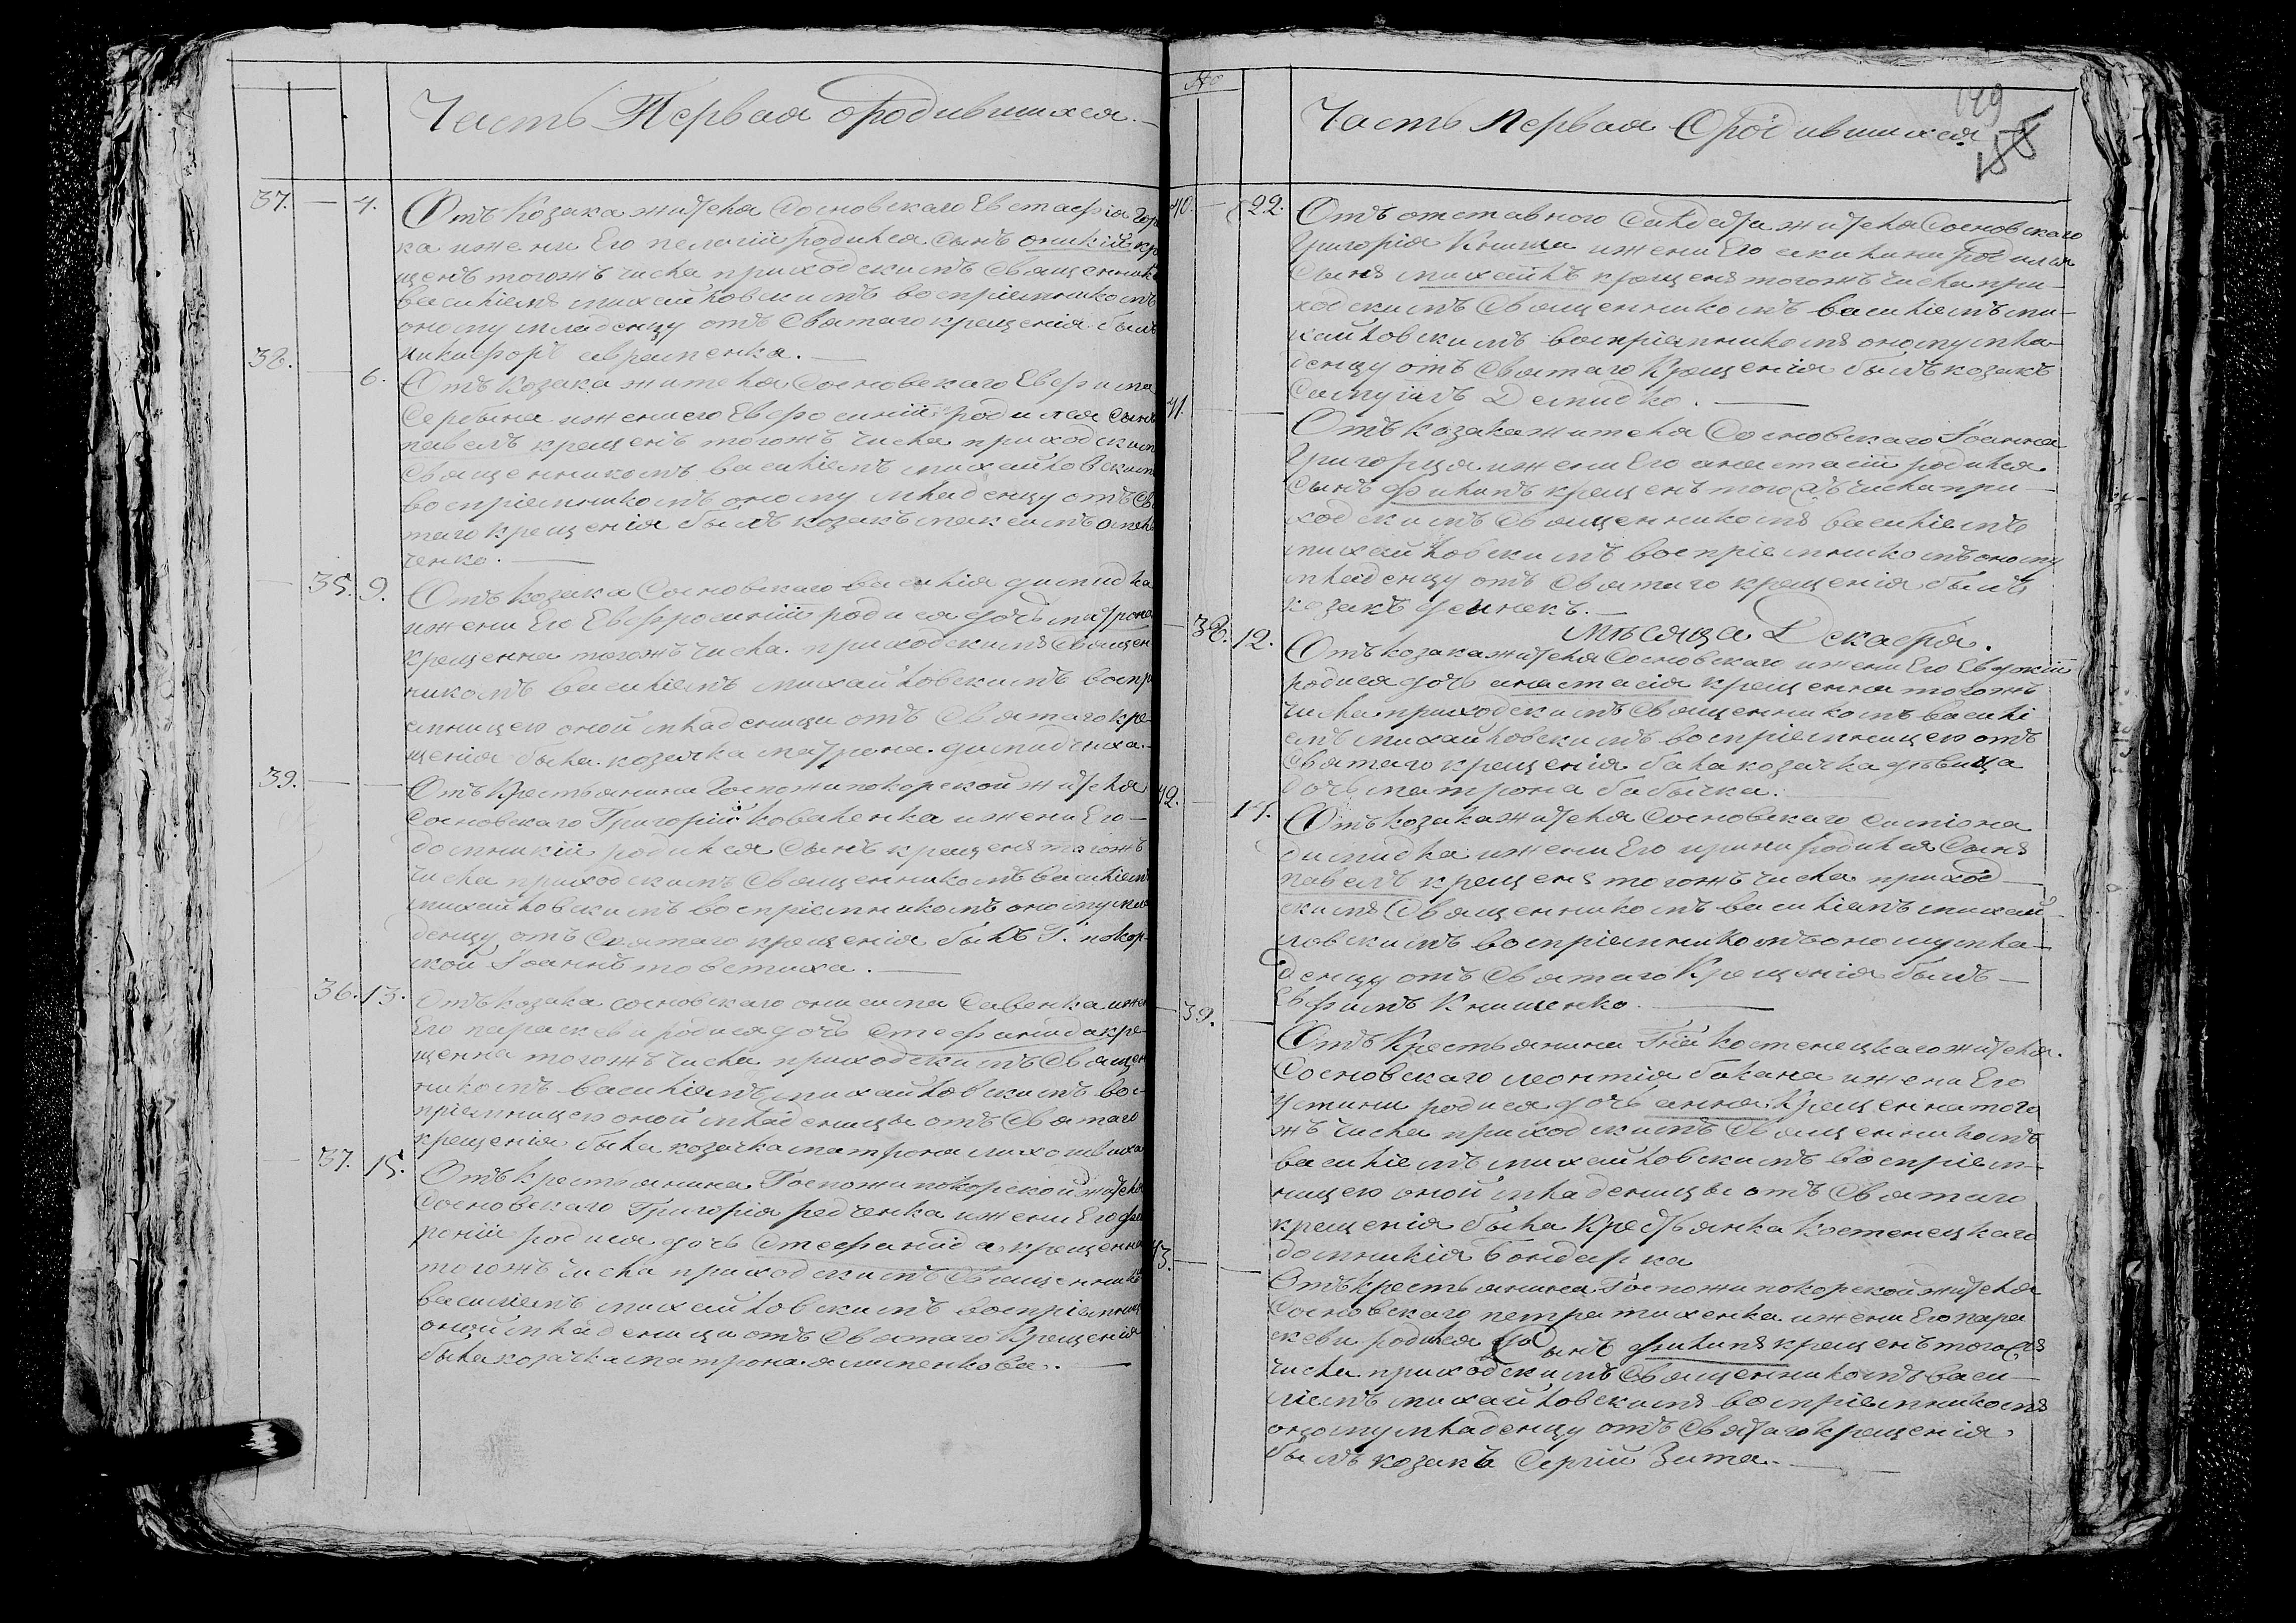 Часть Первая Ородившихся.
37. — 4. Отъ Козака жителя Сосновского Евстафія
ка ижени Его пелагіи родился Сынъ оникій кр
щенъ тогожъ числа приходскимъ Священнико
василіемъ михайловскимъ воспріемникомъ
оному младенцу отъ Святаго крещенія былъ
никифоръ авраменка. —
38. — 6. Отъ Козака жителя Сосновского Евфима
Сербина ижениего Евфросиніи родился Сынъ
павелъ крещенъ тогожъ числа приходским
Священникомъ василіемъ михайловским
воспріемникомъ оному младенцу отъ Св
таго крещенія былъ козакъ максимъ
ченко. —
— 35. 9. Отъ Козака Сосновского василія димидка
ижени Его Евфросиніи родися дочъ матрона
крещенна тогожъ числа. приходскимъ Священ
никомъ василіемъ михайловскимъ воспр
емницею оной младеници отъ Святаго кре
щенія была. козачка матрона. димидчиха. —
39. — — Отъ Крестьянина Госпожи покорской жителя
Сосновского Григорій коваленка ижени Его —
домникіи родился Сынъ крещенъ тогожъ
числа приходскимъ Священникомъ василіем
михайловскимъ воспріемникомъ оному мла
денцу отъ Святаго крещенія былъ Г. покор-
ской Іоаннъ товстиха. —
36. 13. Отъ козака сосновского онисима Савенка ижен
Его параскеви родися дочъ Стефанида кре-
щенна тогожъ числа приходскимъ Священ
никомъ василіемъ михайловскимъ вос-
пріемницею оной младеници отъ Святаго
крещенія была козачка матрона
— 37. 15. Отъ крестьянина Госпожи покорской жителя
Сосновского Григорія редченка ижени Его
роніи родися дочъ Стефанида крещенна
тогожъ числа приходскимъ Священник
василіемъ михайловскимъ воспріемниц
оной младеници отъ Святаго Крещенія
была козачка матрона —
149
188
Часть Первая Ородившихся
40. — 22. Отъ отставного Салдата жителя Сосновского
Григорія Книша ижени Его акилини Родился
Сынъ михаилъ крещенъ тогожъ числа при-
ходскимъ Священникомъ василіемъ ми-
хайловскимъ воспріемникомъ оному мла-
денцу отъ Святаго Крещенія былъ козакъ
Самуилъ Демидко. —
41. — Отъ козака жителя Сосновского Іоанна
Григорця ижени Его анастасіи родился
Сынъ филипъ крещенъ того жъ числа при-
ходскимъ Священникомъ василіемъ
михайловскимъ воспріемникомъ оному
младенцу отъ Святаго крещенія былъ
козакъ —
Мѣсяца Декабря.
— 38. 12. Отъ козака жителя Сосновского ижени Его Евдокіи
родися дочъ анастасія крещенна тогожъ
числа приходскимъ Священникомъ васили
емъ михайловскимъ воспріемницею отъ
Святаго крещенія бала козачка дѣвица
дочъ матрона бабичка. —
42. — 17. Отъ козака жителя Сосновского симіона
димидка ижени Его ирини родился Сынъ
павелъ крещенъ тогожъ числа приход —
скимъ Священникомъ василіемъ михай-
ловскимъ воспріемникомъ оному мла —
денцу отъ Святаго Крещенія былъ —
Евфимъ Книшенко —
— 39. — Отъ Крестьянина Гна костенецкаго жителя.
Сосновского леонтія бакана ижени Его
Устини родися дочъ анна Крещенна того
жъ числа приходскимъ Священникомъ
василіемъ михайловскимъ воспріем-
ницею оной младеницы отъ Святаго
крещенія была Крестьянка костенецкаго
домникія бондарка
43. — — Отъ крестьянина Госпожи покорской жителя
Сосновского петра тихенка ижени Его пара
скеви родился Сынъ филипъ крещенъ того жъ
числа приходскимъ Священникомъ васи —
ліемъ михайловскимъ воспріемникомъ
оному младенцу отъ Святаго крещенія.
былъ козакъ Сергій Зима. —